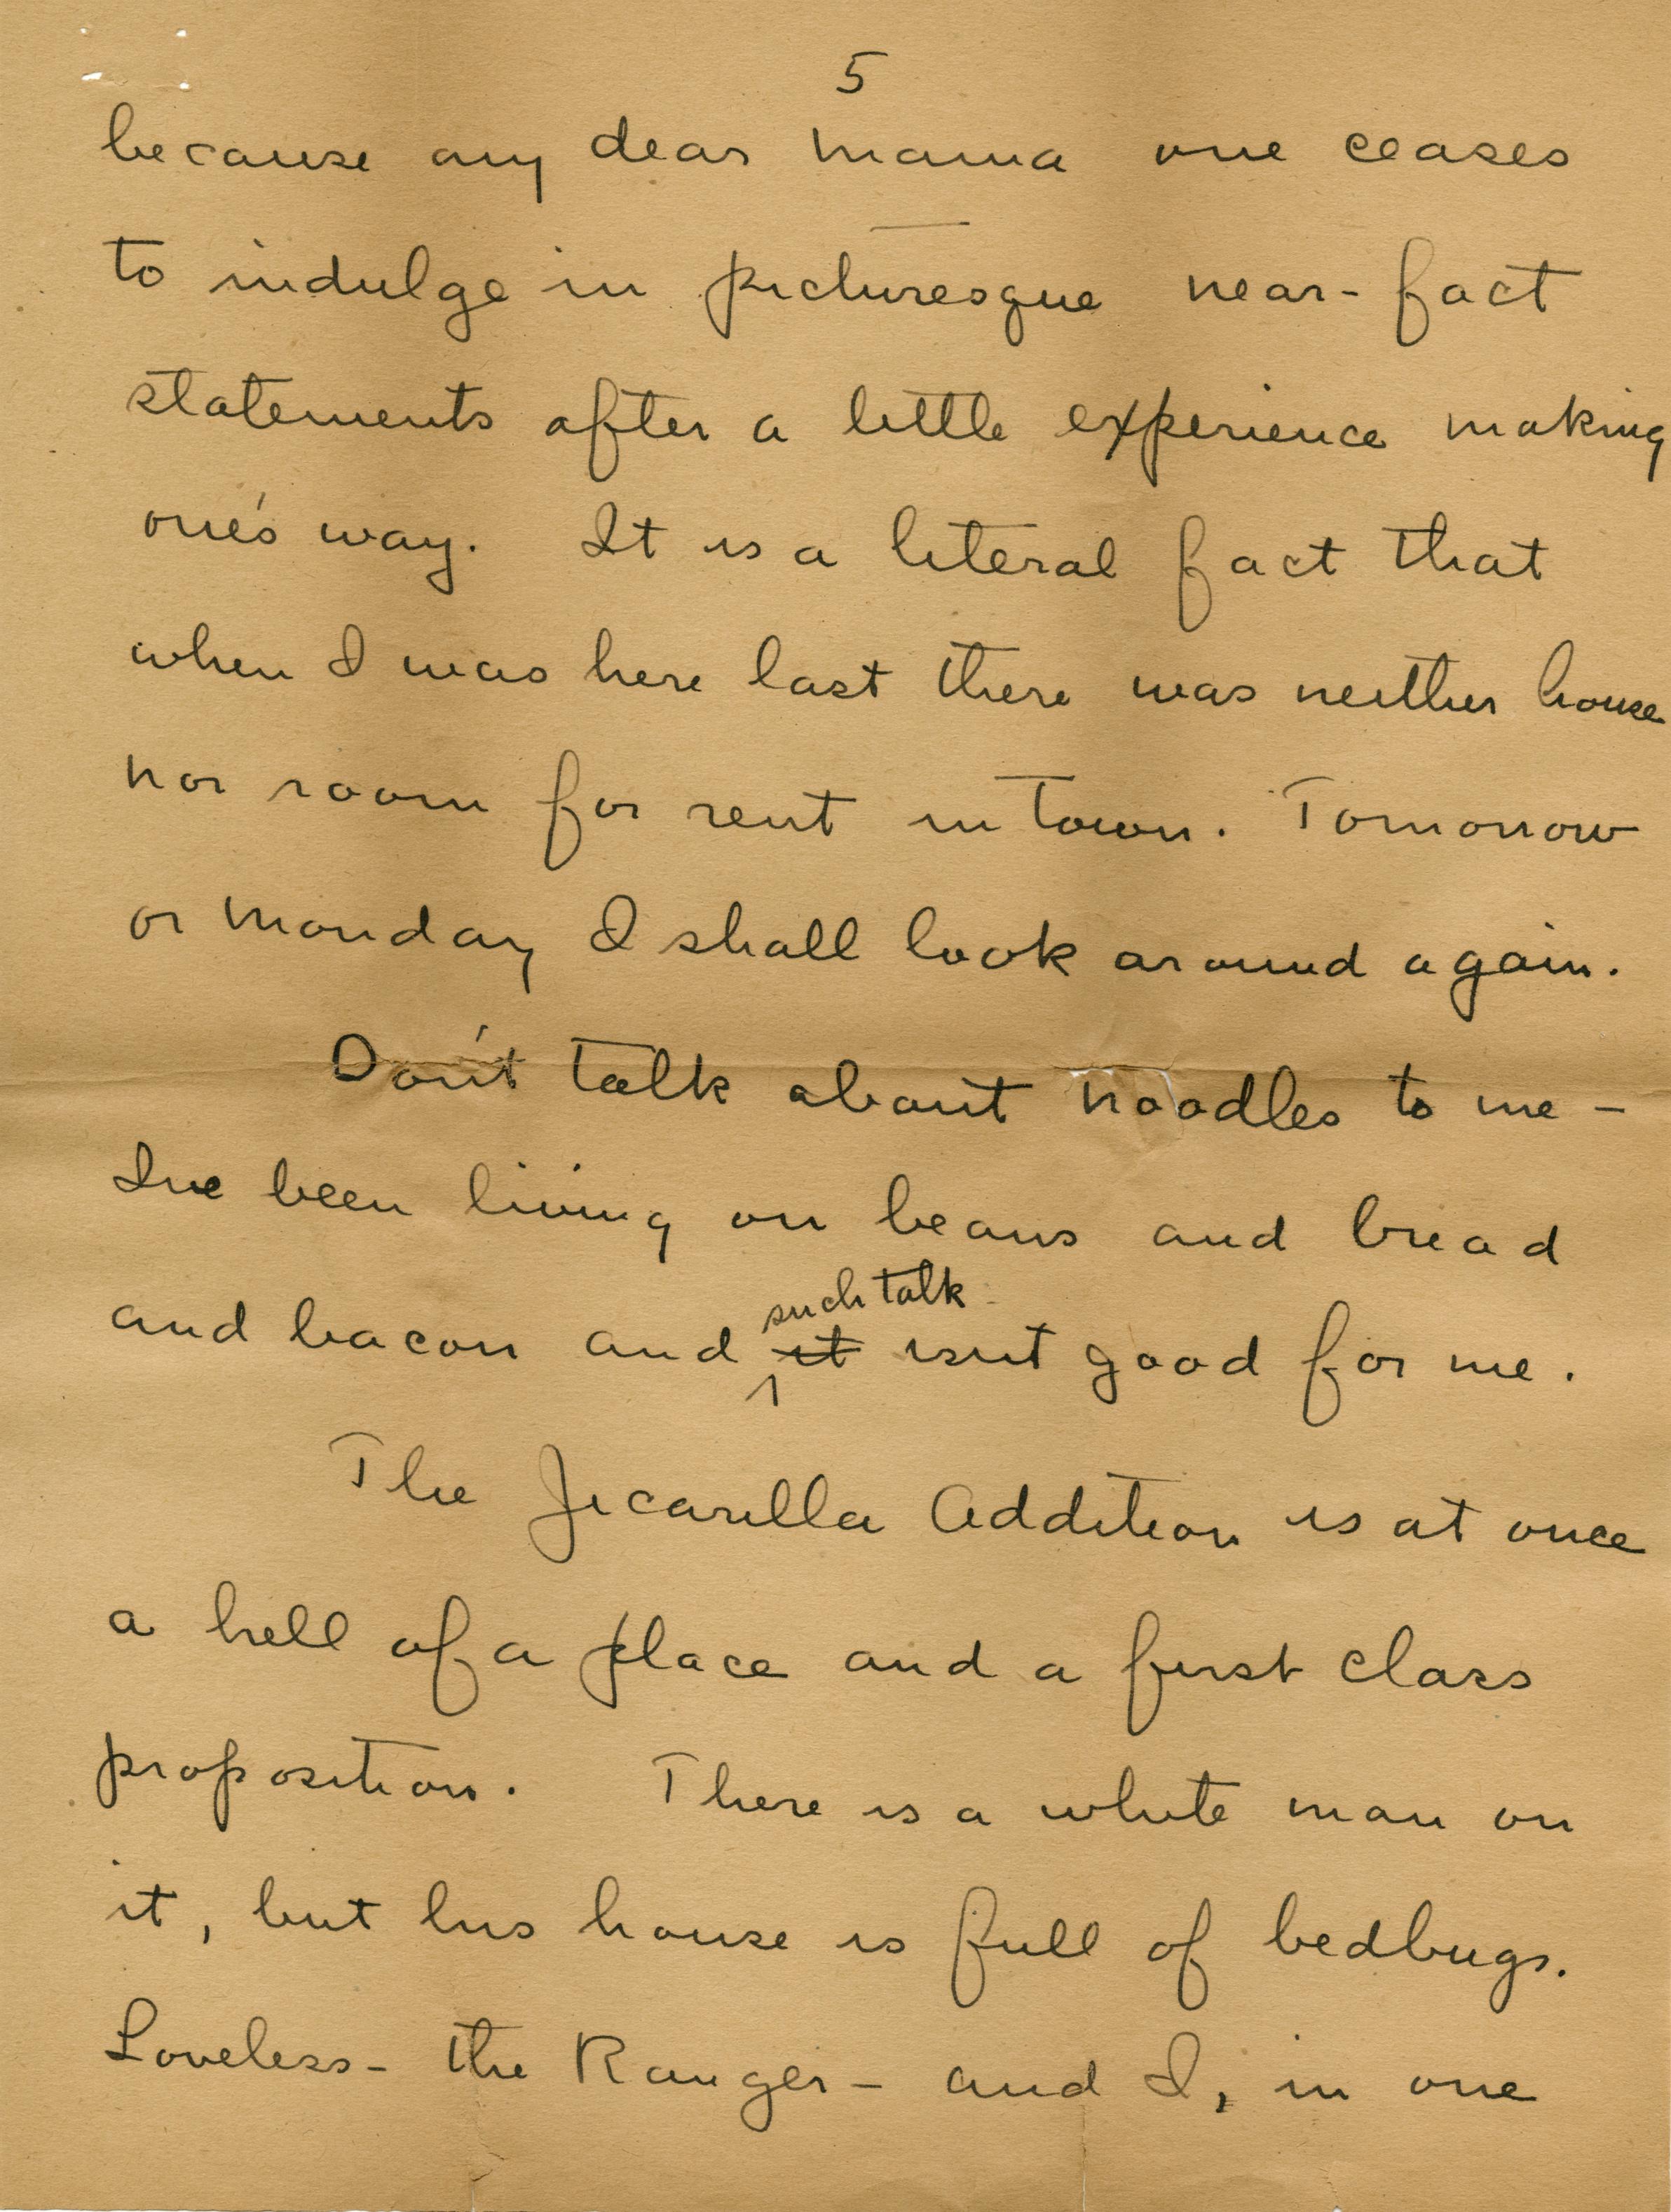 5
because my dear mama one ceases
to indulge in picturesque near-fact
statements after a little experience making
one's way. It is a literal fact that
when I was here last there was neither house
nor room for rent in town. Tomorrow
or Monday I shall look around again.
Don't talk about noodles to me -
Ive been living on beans and bread
such talk
and bacon and it isnt good for me.
The Jicarilla Addition is at once
a hell of a place and a first class
proposition. There is a white man on
it, but his house is full of bedbugs.
Loveless - the Ranger - and I, in one